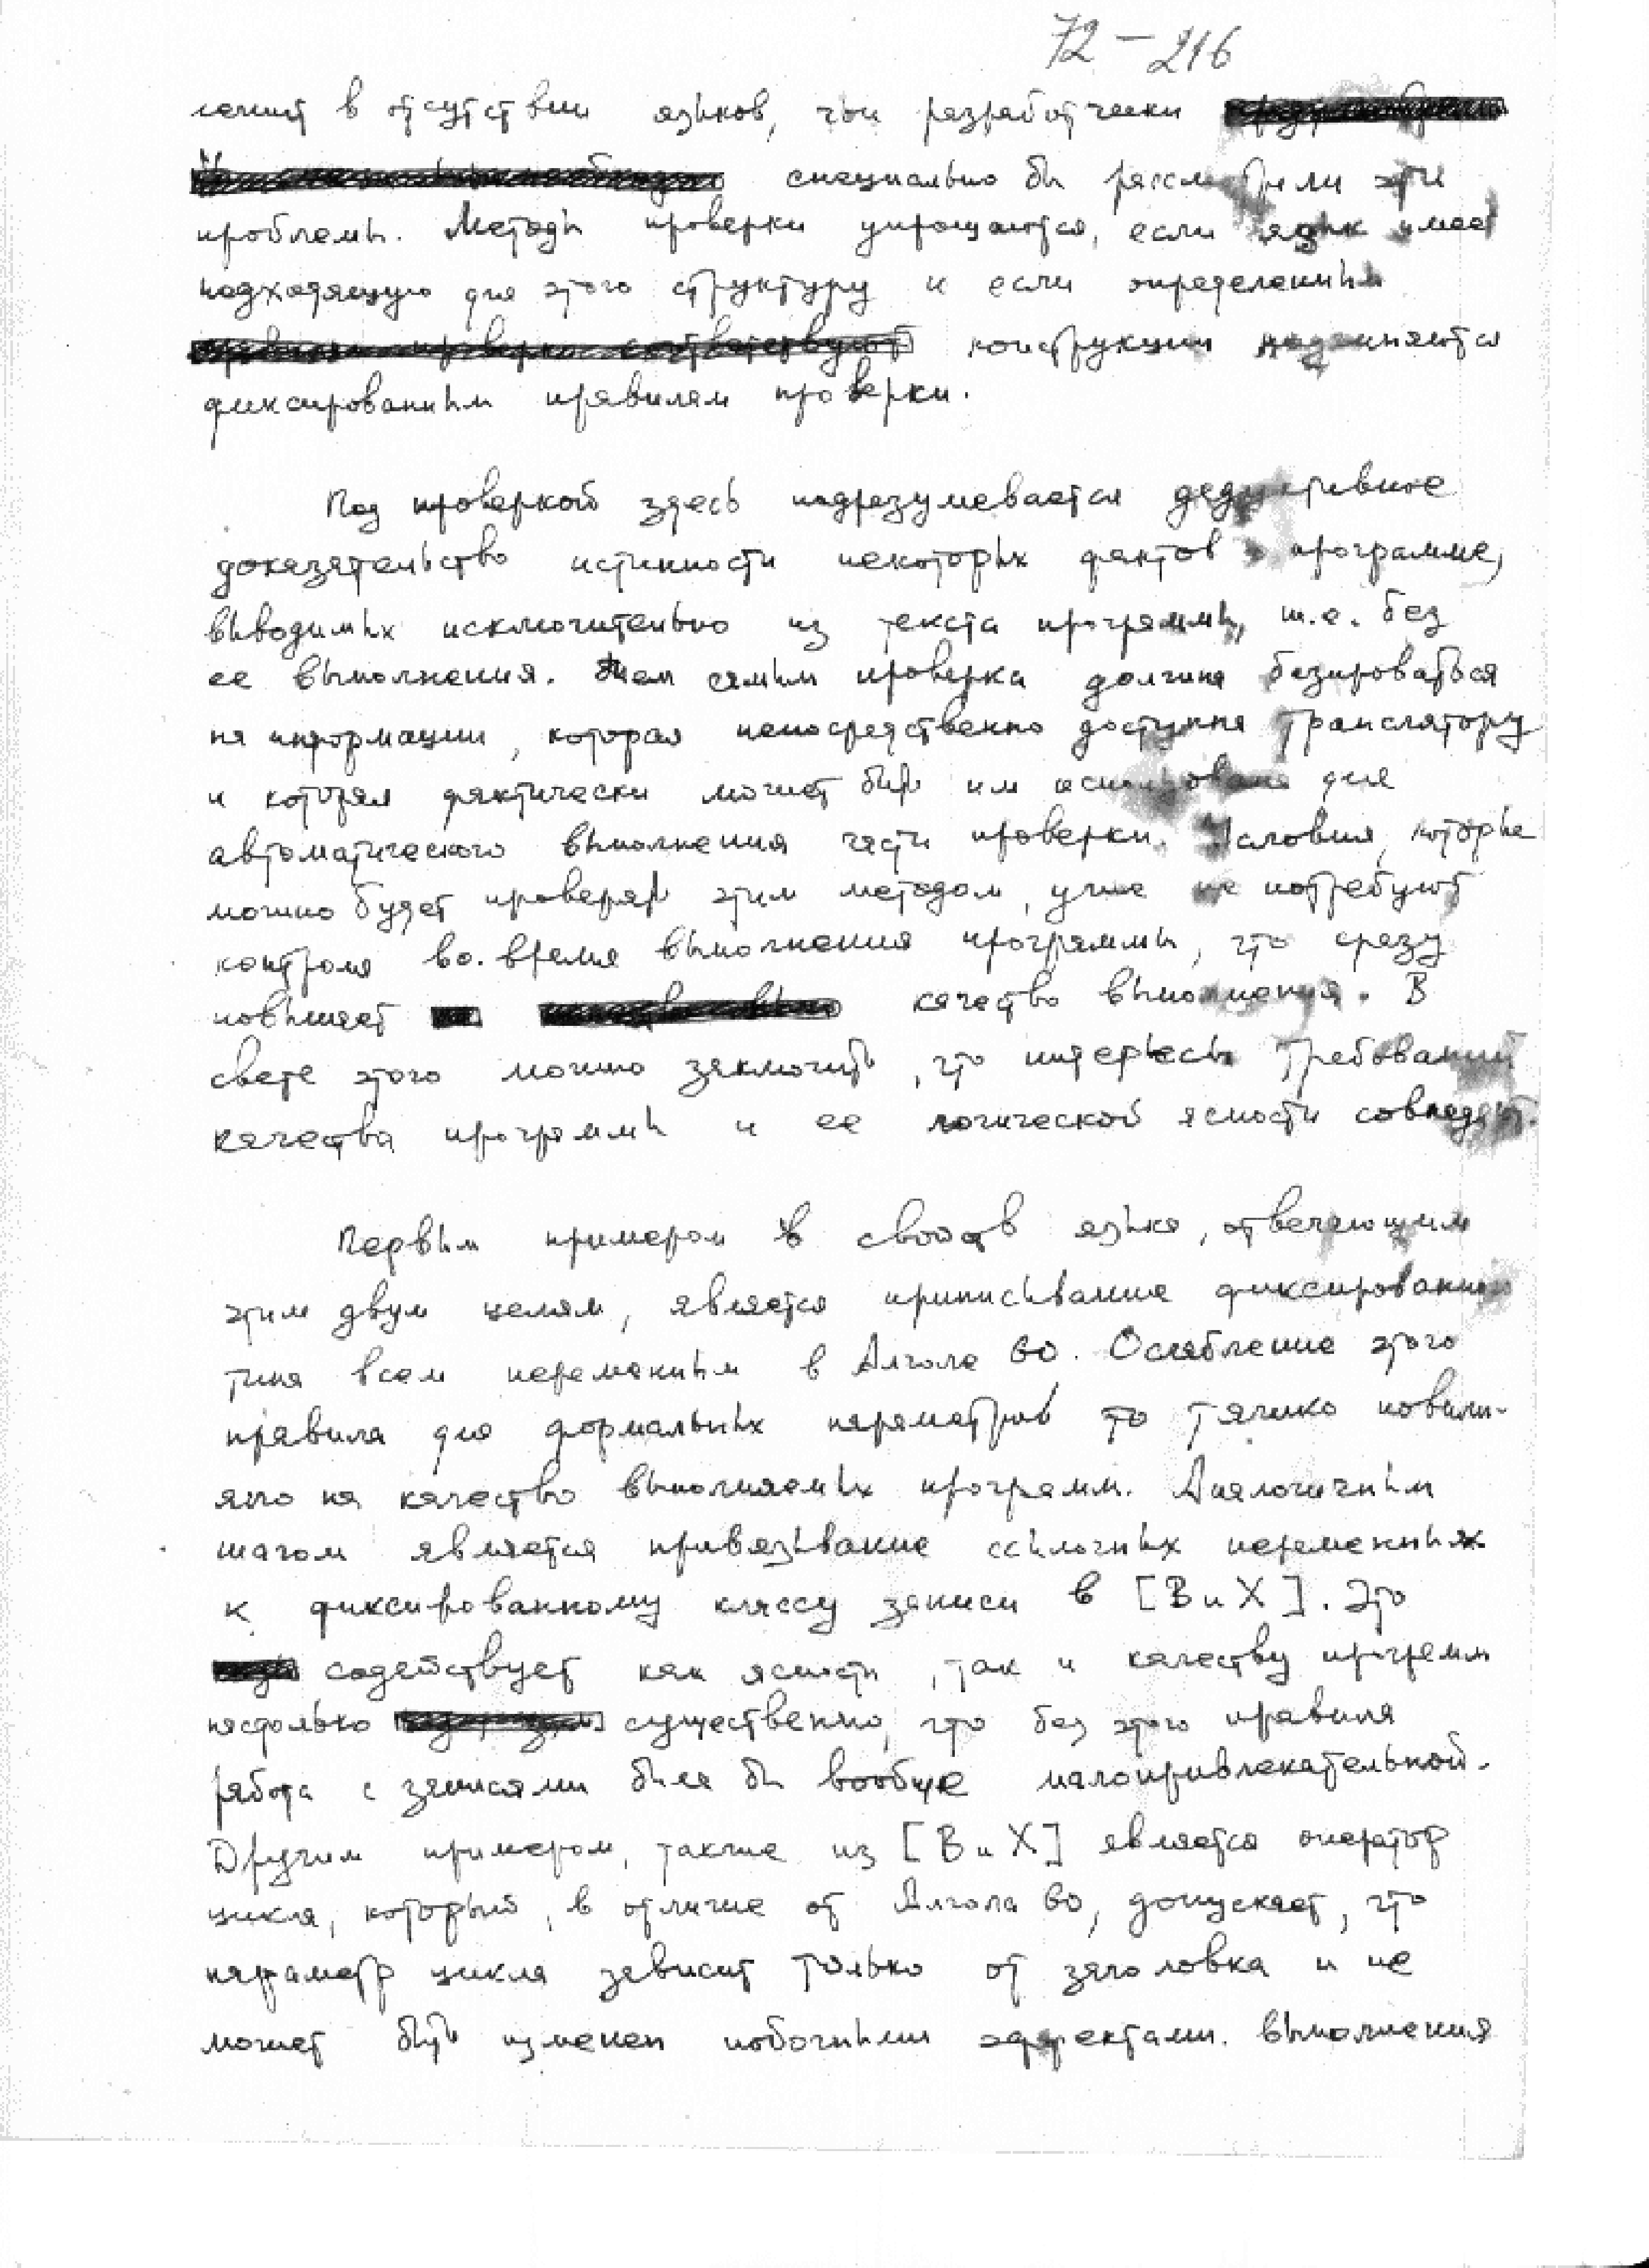 72-216
лежит в отсутствии языков, чьи разработчики
специально бы рассмотрели эти
проблемы. Методы проверки упрощаются, если язык имеет
подходящую для этого структуру и если определенным
конструкции подчиняются
фиксированным правилам проверки.
Под проверкой здесь подразумевается дедуктивное
доказательство истинности некоторых фактов о программе,
выводимых исключительно из текста программы, т.е. без
ее выполнения. Тем самым проверка должна базироваться
на информации, которая непосредственно доступна транслятору
и которая фактически может быть им использована для
автоматического выполнения части проверки. Условия, которые
можно будет проверять этим методом, уже не потребуют
контроля во время выполнения программы, что сразу
повышает качество выполнения. В
свете этого можно заключить, что интересы требований
качества программы и ее логической ясности совпадают.
Первым примером свойств языка, отвечающим
этим двум целям, является приписывание фиксированного
типа всем переменным в Алголе 60. Ослабление этого
правила для формальных параметров то тяжко повли-
яло на качество выполняемых программ. Аналогичным
шагом является привязывание ссылочных переменных
к фиксированному классу записи в [В и Х]. Это
содействует как ясности, так и качеству программ
настолько существенно, что без этого правила
работа с записями была бы вообще малопривлекательной.
Другим примером, также из [В и Х] является оператор
цикла, который, в отличие от Алгола 60, допускает, что
параметр цикла зависит только от заголовка и не
может быть изменен побочными эффектами. выполнения